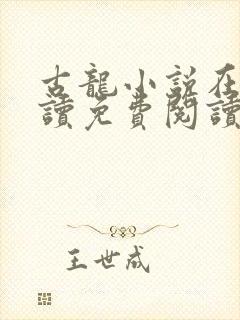 古龍小說在
讀免費閱讀
王世成